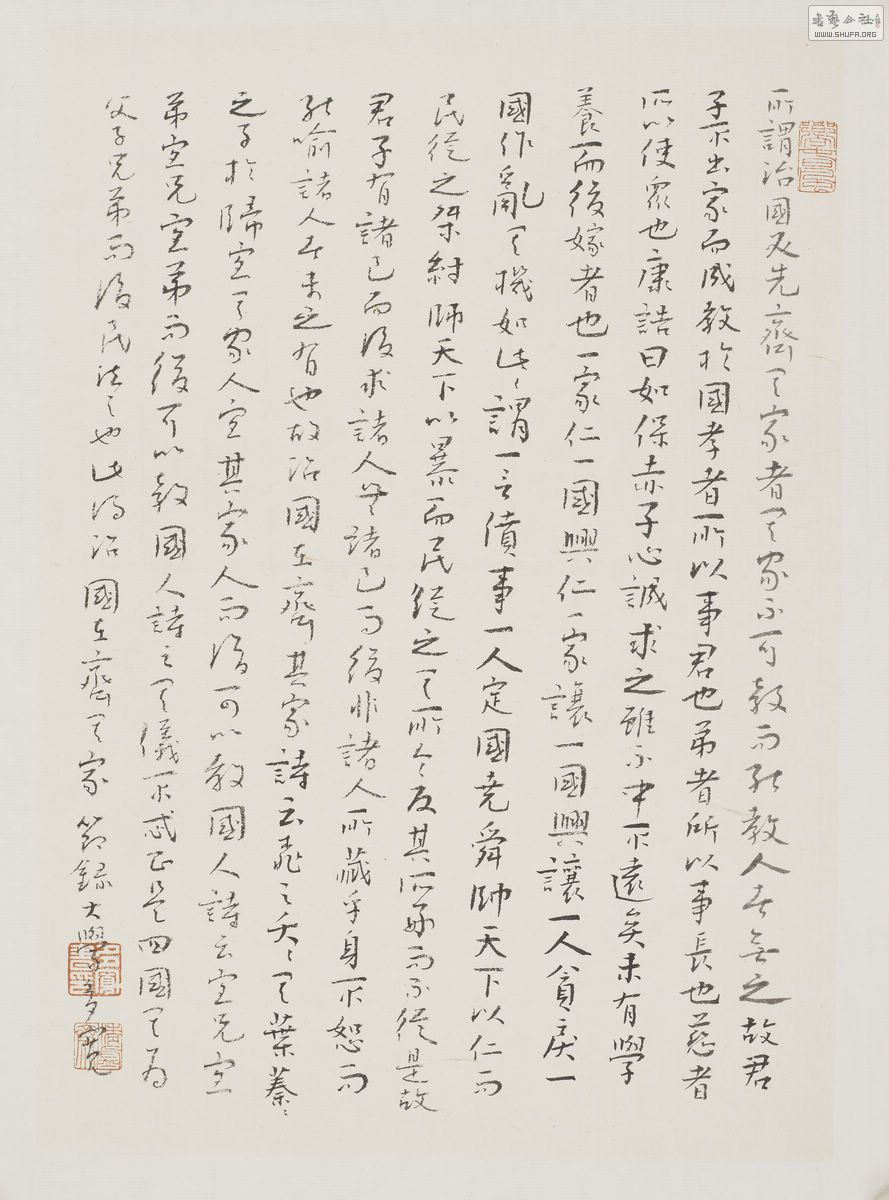 所謂治國必先齊其家者其家不可教而能教人者無之故君
子不出家而成教於國孝者所以事君也弟者所以事長也慈者
所以使眾也康誥曰如保赤子心誠求之雖不中不遠矣未有學
養而後嫁者也一家仁一國興仁一家讓一國興讓一人貪戾一
國作亂其機如此此謂一言僨事一人定國堯舜帥天下以仁而
民從之桀紂帥天下以暴而民從之其所令反其所好而不從是故
君子有諸己而後求諸人無諸己而後非諸人所藏乎身不恕而
能喻諸人者未之有也故治國在齊其家詩云桃之夭夭其葉蓁蓁
之子於歸宜其家人宜其家人而後可以教國人詩云宜兄宜
弟宜兄宜弟而後可以教國人詩云其儀不忒正是四國其為
父子兄弟而後民法之也此謂治國在齊其家 節錄大學
書藝公社
WWW.SHUFA.ORG